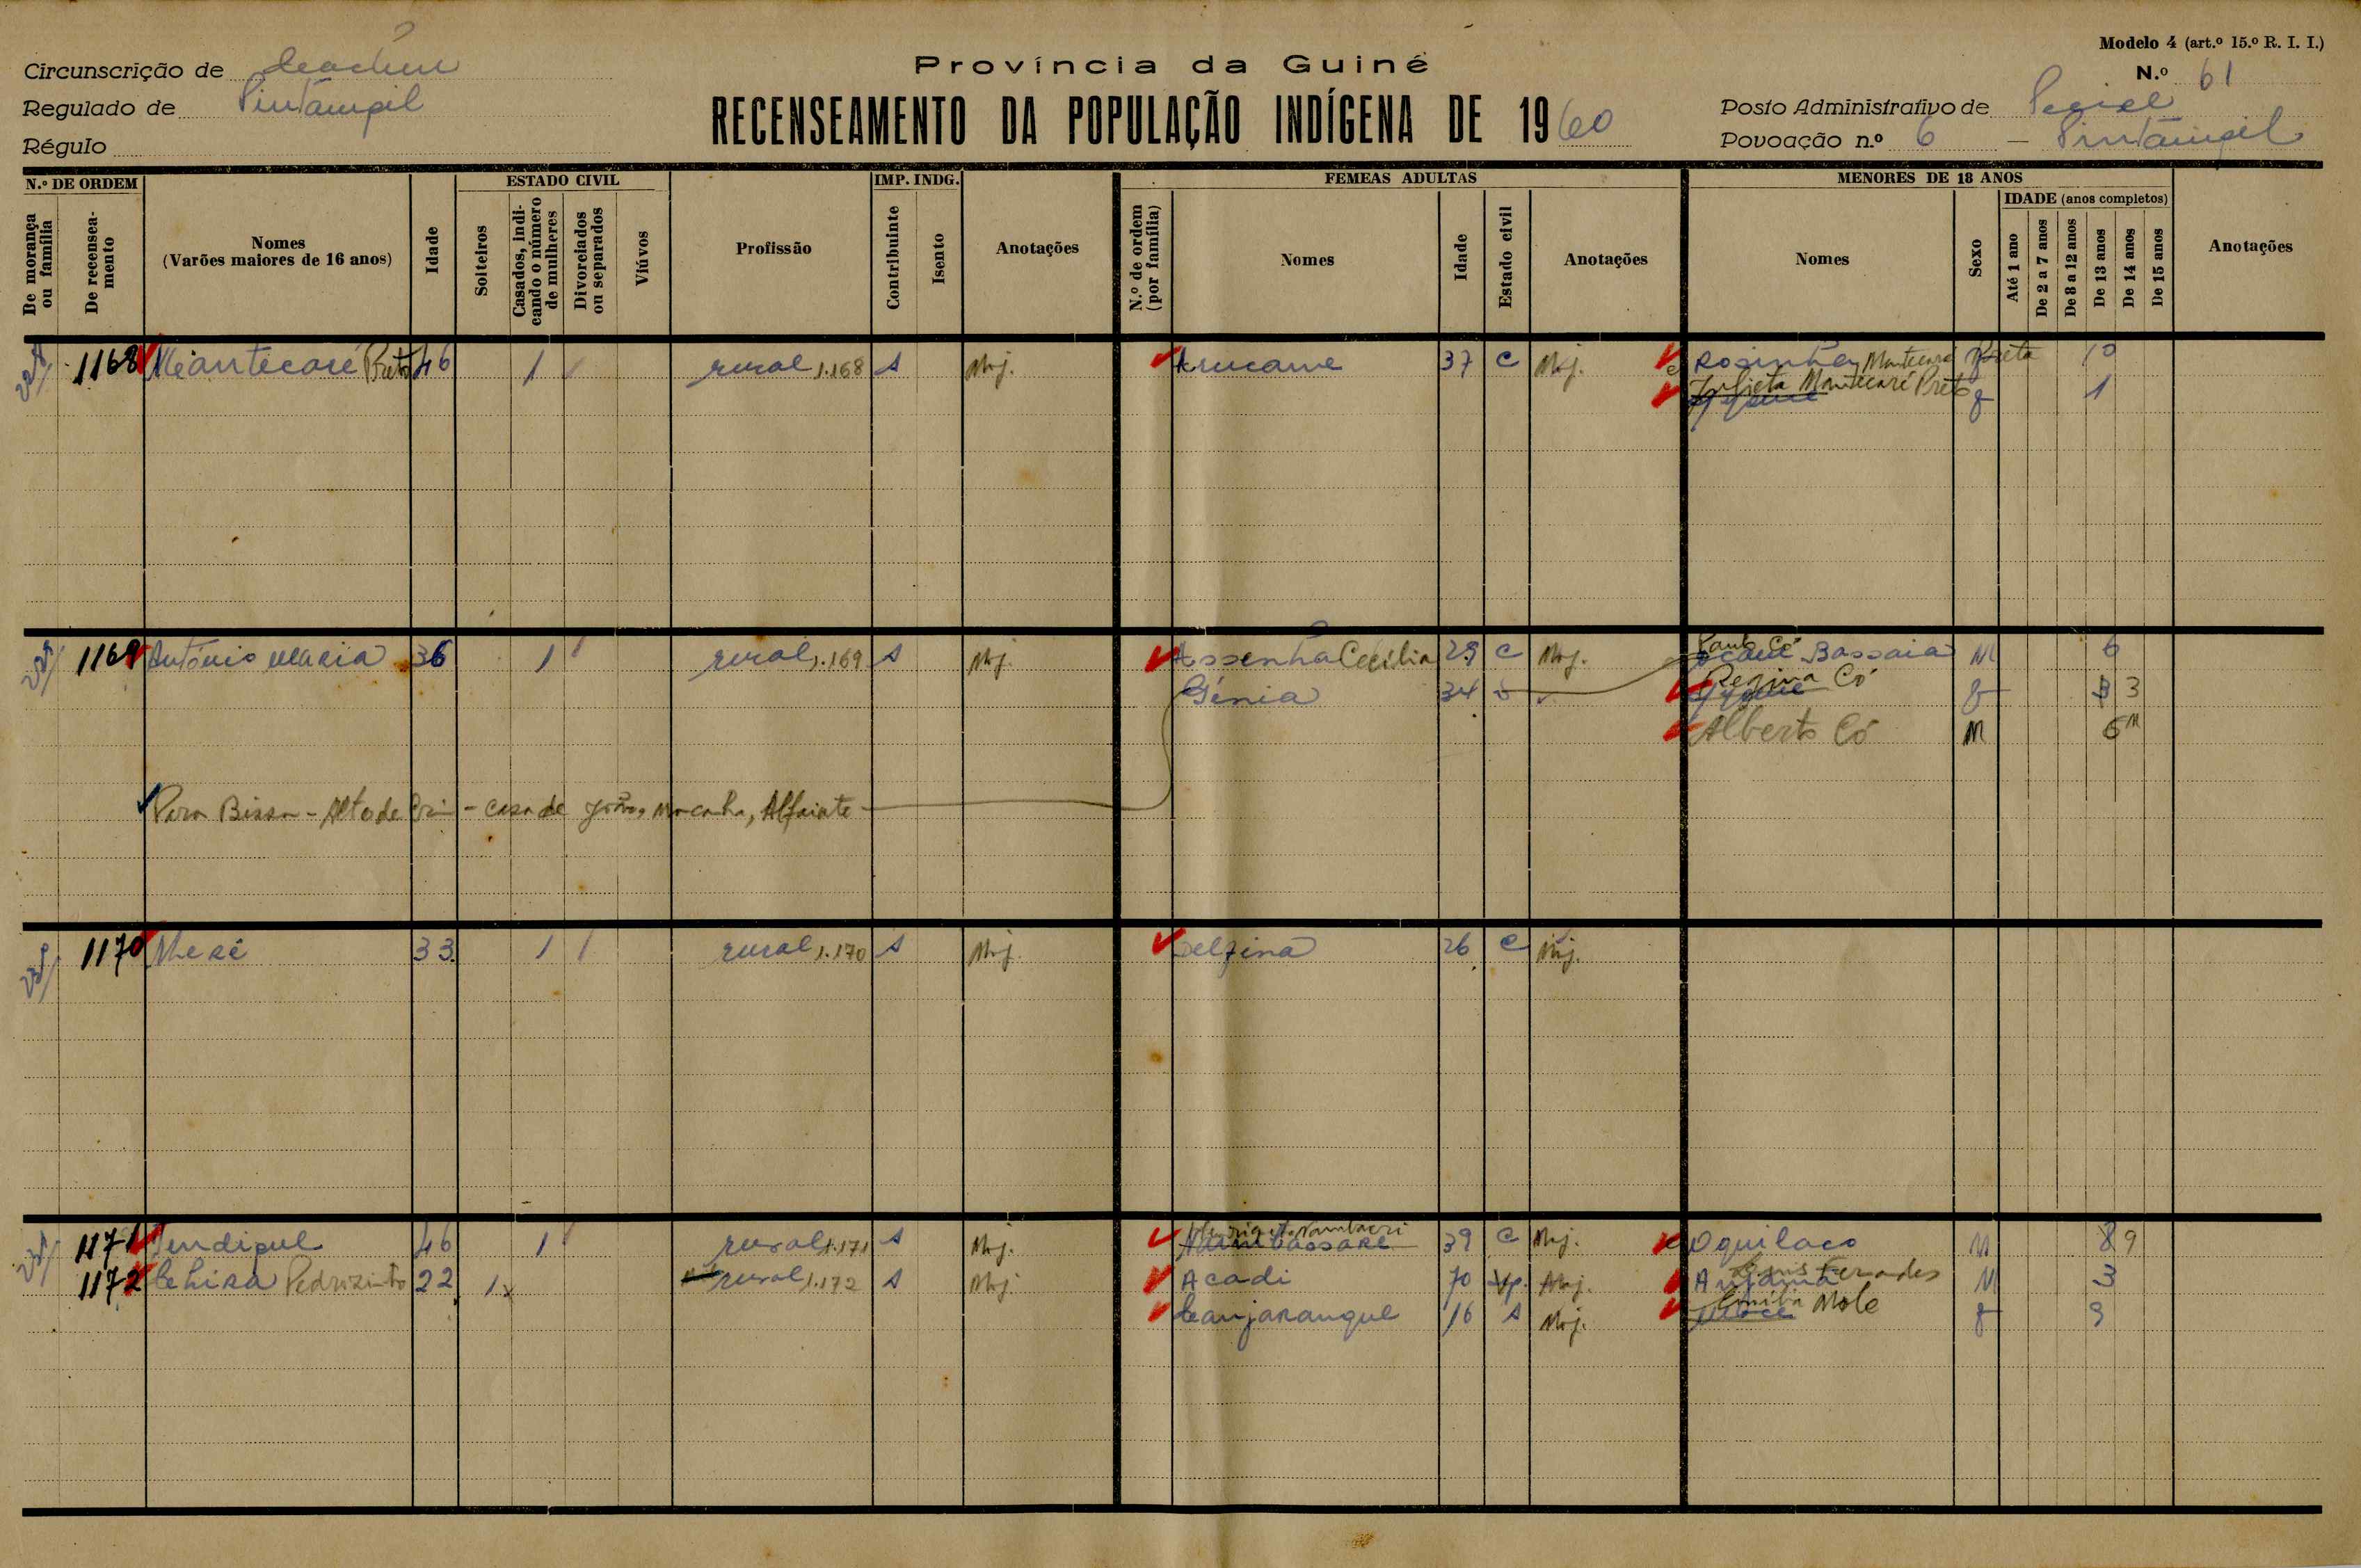 Modelo 4 (art.º 15.º R. I. I.)
Província da Guiné
N.º 61
Circunscrição de Cacheu
Regulado de Pintampil
Régulo
RECENSEAMENTO DA POPULAÇÃO INDÍGENA DE 1960
Posto Administrativo de Pecixe
Povoação n.º 6 — Pintampil
N.º DE ORDEM
De morança ou família
De recenseamento
Nomes
(Varões maiores de 16 anos)
Idade
ESTADO CIVIL
Solteiros
Casados, indicando o número de mulheres
Divorciados ou separados
Viúvos
Profissão
IMP. INDG.
Contribuinte
Isento
Anotações
FEMEAS ADULTAS
N.º de ordem (por família)
Nomes
Idade
Estado civil
Anotações
MENORES DE 18 ANOS
Nomes
Sexo
IDADE (anos completos)
Até 1 ano
De 2 a 7 anos
De 8 a 12 anos
De 13 anos
De 14 anos
De 15 anos
Anotações
1168 Mantecaré Preto 46 1 rural 1.168 s Mnj. Arucame 37 c Mnj. Rosinha Mantecaré Preta f 10
Julieta Mantecaré Preto f 1
1169 António Maria 36 1 rural 1.169 s Mnj. Assenha Cecília 29 c Mnj. Paulo Có Bassaia M 6
Génia 34 Regina Có f 3 3
Alberto Có M 6 M
Para Bissau - Alto de Crim - casa de João, Mancanha, Alfaiate
1170 Meré 33 1 rural 1.170 s Mnj. Delfina 26 c Mnj.
1171 Pendipul 46 1 rural 1.171 s Mnj. Nambassaré 39 c Mnj. Oquilaco M 8 9
1172 Chira Pedrizinto 22 1 rural 1.172 s Mnj. Acadi 70 Mnj. Luis Fernades M 3
Canjarangue 16 s Mnj. Emília Mole f 9